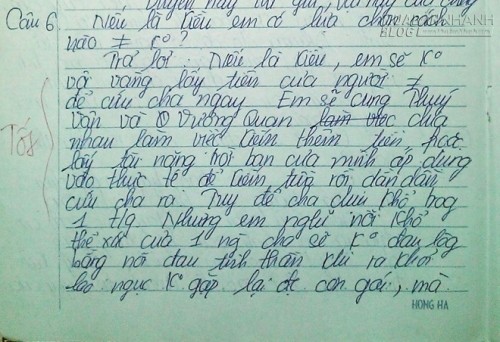 Duyên này thì giữ, vật này của chung
Câu 6 Nếu là Kiều em có lựa chọn cách
nào ≠ k°?
Trả lời: Nếu là Kiều, em sẽ k°
vội vàng lấy tiền của người ≠
để cứu cha ngay Em sẽ cùng Thuý
Vân và Vương Quan làm việc chia
nhau làm việc kiếm thêm tiền, hoặc
lấy tài năng trời ban của mình áp dụng
vào thực tế để kiếm tiền rồi dần dần
Tốt
cứu cha ra. Tuy để cha chịu khổ
1 t/g Nhưng em nghĩ nỗi khổ
thể xác của 1 ng cha sẽ k° đau
bằng nỗi đau tinh thần khi ra khỏi
lao ngục k° gặp lại đc con gái, mà
HONG HA
BLOG